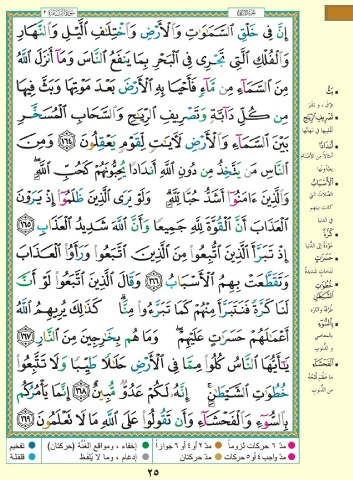 إِنَّ فِي خَلْقِ السَّمَٰوَٰتِ وَالْأَرْضِ وَاخْتِلَٰفِ الَّيْلِ وَالنَّهَارِ
وَالْفُلْكِ الَّتِي تَجْرِي فِي الْبَحْرِ بِمَا يَنفَعُ النَّاسَ وَمَا أَنزَلَ اللَّهُ
مِنَ السَّمَاءِ مِن مَّاءٍ فَأَحْيَا بِهِ الْأَرْضَ بَعْدَ مَوْتِهَا وَبَثَّ فِيهَا
مِن كُلِّ دَابَّةٍ وَتَصْرِيفِ الرِّيَٰحِ وَالسَّحَابِ الْمُسَخَّرِ
بَيْنَ السَّمَاءِ وَالْأَرْضِ لَأٓيَٰتٍ لِّقَوْمٍ يَعْقِلُونَ ١٦٤ وَمِنَ
النَّاسِ مَن يَتَّخِذُ مِن دُونِ اللَّهِ أَندَادًا يُحِبُّونَهُمْ كَحُبِّ اللَّهِ
وَالَّذِينَ ءَامَنُوا أَشَدُّ حُبًّا لِّلَّهِ وَلَوْ يَرَى الَّذِينَ ظَلَمُوا إِذْ يَرَوْنَ
الْعَذَابَ أَنَّ الْقُوَّةَ لِلَّهِ جَمِيعًا وَأَنَّ اللَّهَ شَدِيدُ الْعَذَابِ ١٦٥
إِذْ تَبَرَّأَ الَّذِينَ اتُّبِعُوا مِنَ الَّذِينَ اتَّبَعُوا وَرَأَوُا الْعَذَابَ
وَتَقَطَّعَتْ بِهِمُ الْأَسْبَابُ ١٦٦ وَقَالَ الَّذِينَ اتَّبَعُوا لَوْ أَنَّ
لَنَا كَرَّةً فَنَتَبَرَّأَ مِنْهُمْ كَمَا تَبَرَّءُوا مِنَّا كَذَٰلِكَ يُرِيهِمُ اللَّهُ
أَعْمَٰلَهُمْ حَسَرَٰتٍ عَلَيْهِمْ وَمَا هُم بِخَٰرِجِينَ مِنَ النَّارِ ١٦٧
يَٰٓأَيُّهَا النَّاسُ كُلُوا مِمَّا فِي الْأَرْضِ حَلَٰلًا طَيِّبًا وَلَا تَتَّبِعُوا
خُطُوَٰتِ الشَّيْطَٰنِ إِنَّهُ لَكُمْ عَدُوٌّ مُّبِينٌ ١٦٨ إِنَّمَا يَأْمُرُكُم
بِالسُّوءِ وَالْفَحْشَاءِ وَأَن تَقُولُوا عَلَى اللَّهِ مَا لَا تَعْلَمُونَ ١٦٩
بَثَّ
تَصْرِيفِ الرِّيَٰحِ
أَندَادًا
الْأَسْبَابُ
كَرَّةً
حَسَرَٰتٍ
خُطُوَٰتِ
الشَّيْطَٰنِ
بِالسُّوءِ
الْفَحْشَاءِ
مدّ ٦ حركات لزوماً مدّ ٢ أو ٤ أو ٦ جوازاً إخفاء، ومواقع الغُنَّة (حركتان) تفخيم
مدّ واجب ٤ أو ٥ حركات مدّ حركتان إدغام، وما لا يُلفَظ قلقلة
٢٥